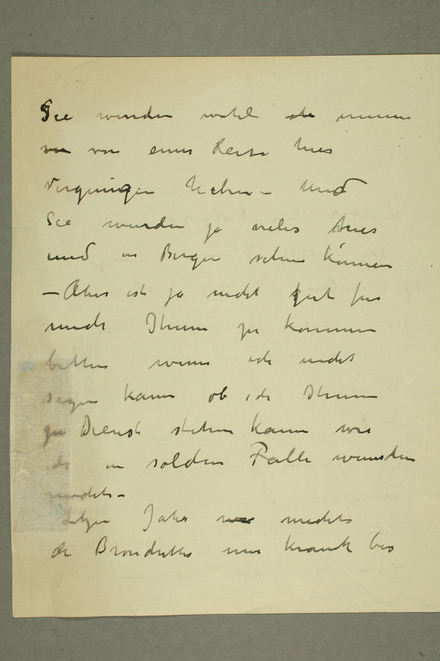 Sie wurden wohl
von einer Reise hier
Vergnügen haben – Und
Sie wurden ja vieles hier
und in Bergen sehen können
– Aber ist ja nicht gut für
mich Ihnen zu kommen
bitten wenn ich nicht
sagen kann ob ich Ihnen
zu Dienst stehen kann wie
ich in solchen Falle wunschen
mochte –
Jahr machte
die Bronchitis mir krank bis